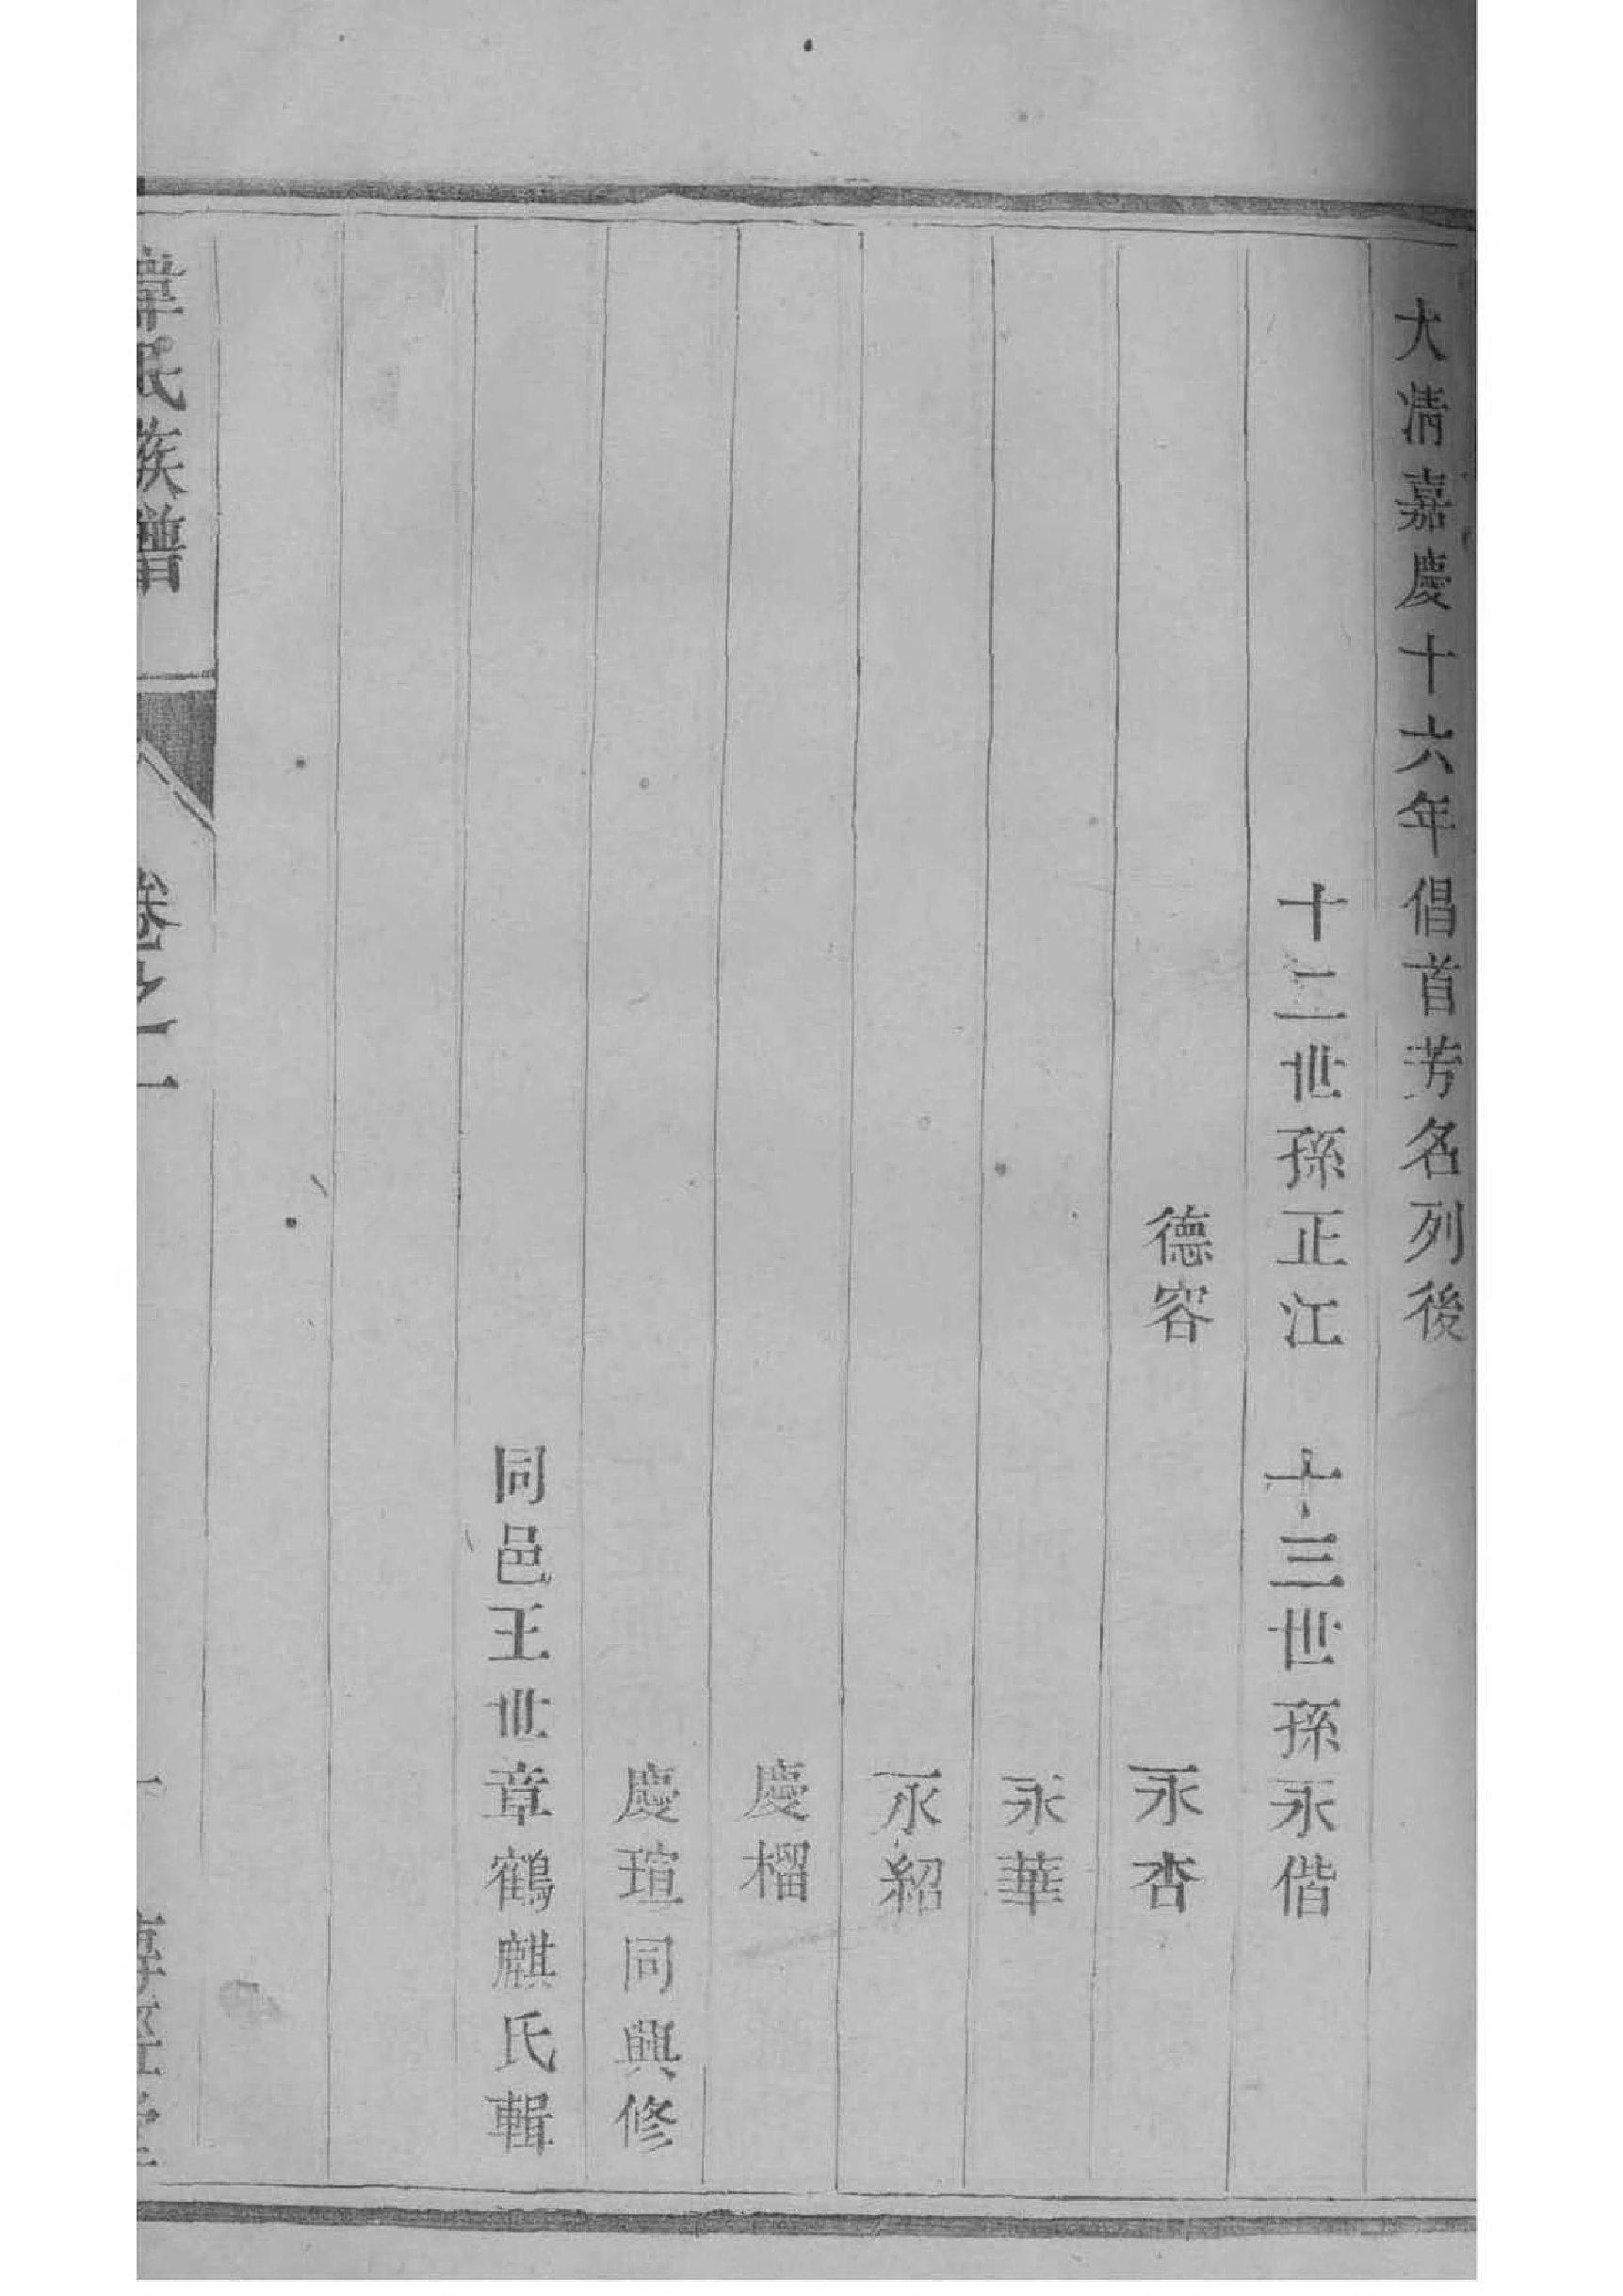 大淸嘉慶十六年倡首芳名列後
十二世孫正江　十三世孫永偕
德容　永杏
永華
永紹
慶榴
慶瑄同興修
同邑王世章鶴麒氏輯
韋氏族譜　卷之一　一